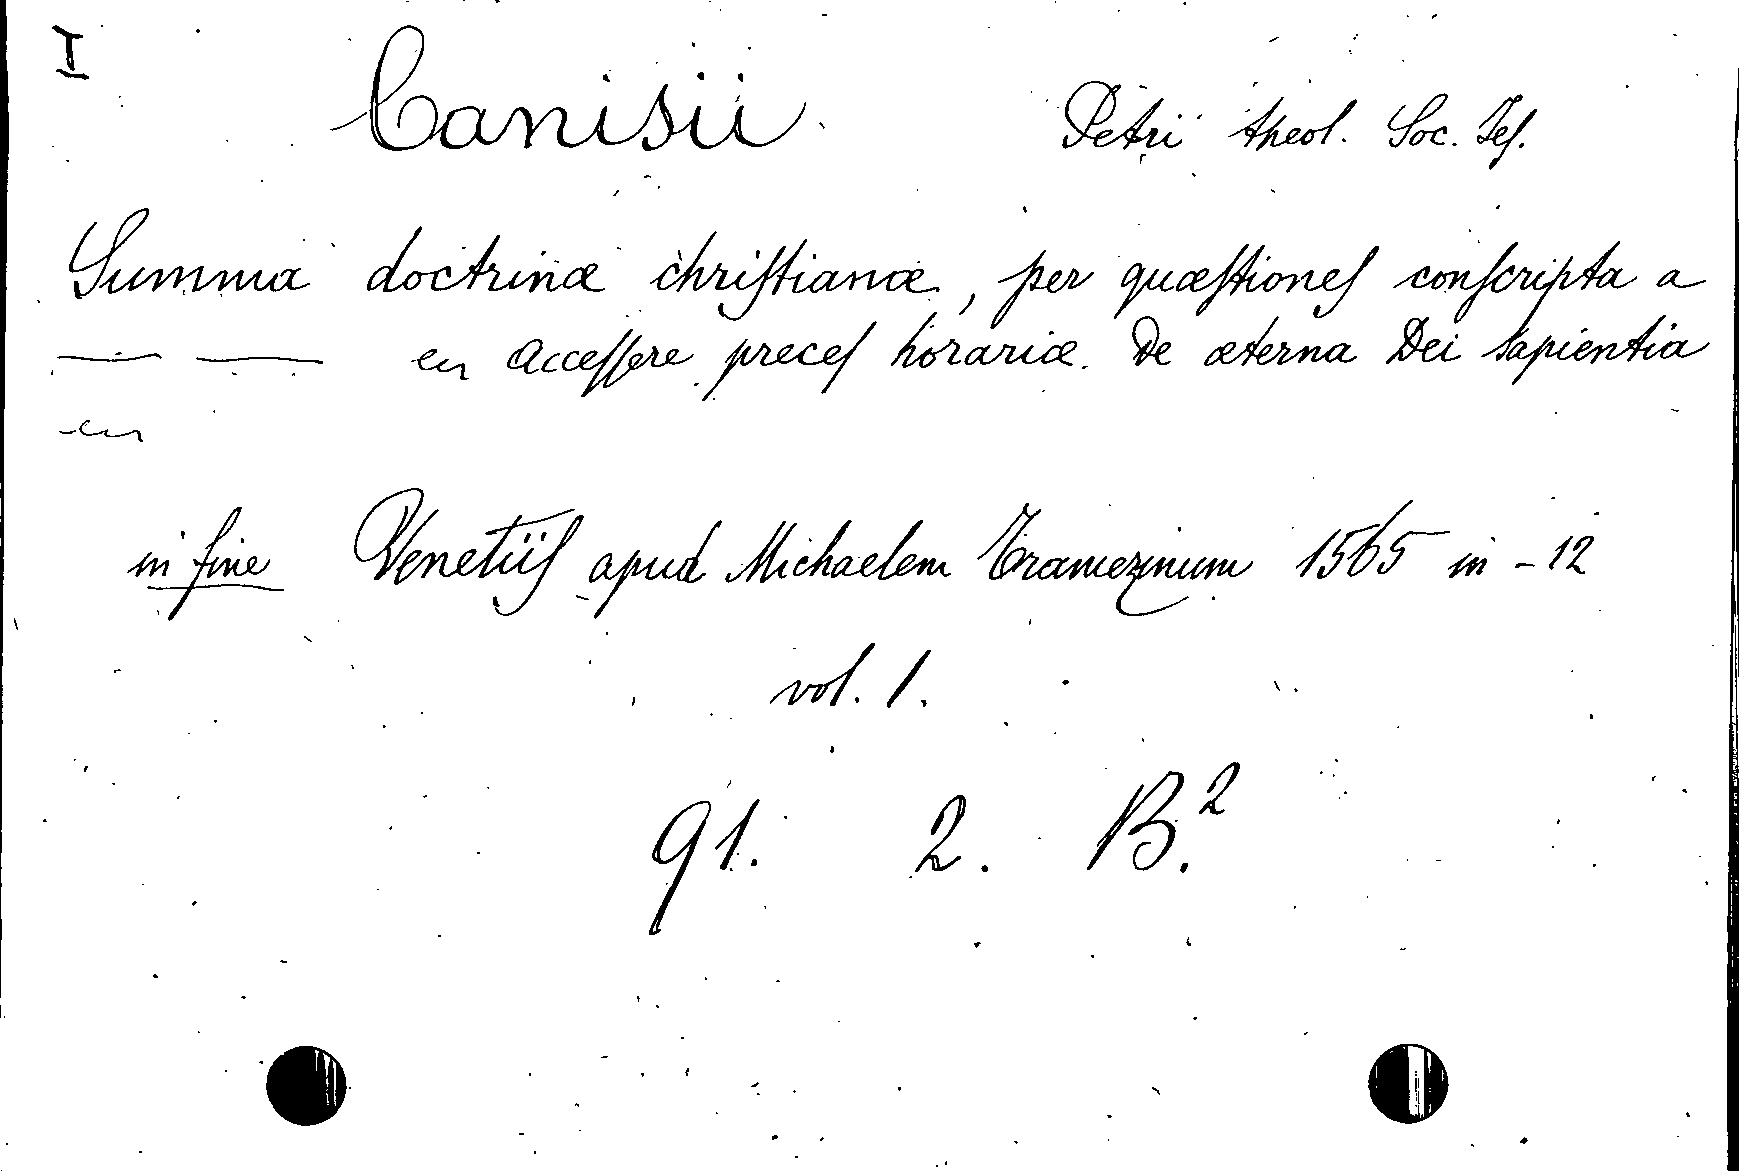 I
Canisii Petri theol. Soc. Jes.
Summa doctrinæ chriſtianæ, per quæſtioneſ conſcripta a
—— —— en Acceſſere preceſ horariæ. De æterna Dei sapientia
en
in fine Venetiiſ apud Michaelem Tramezinum 1565 in-12
vol. 1.
91. 2. B.²